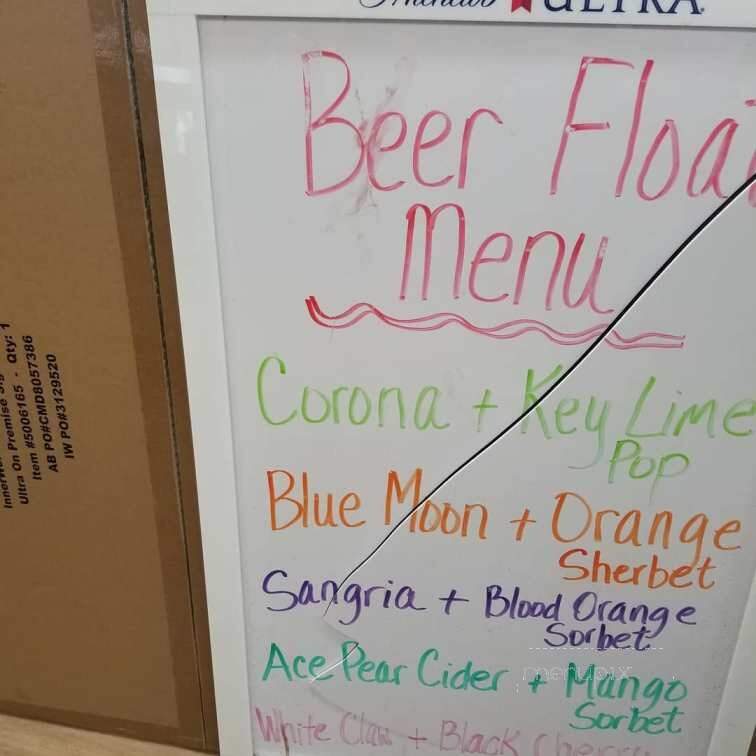 Michelob ULTRA
Beer Floa
Menu
Corona + Key Lime
Pop
Blue Moon + Orange
Sherbet
Sangria + Blood Orange
Sorbet
Ace Pear Cider + Mango
Sorbet
White Claw + Black Cherry
Ultra On Premise Sig Qty: 1
Item #5006165 -
AB PO#CMD8057386
IW PO#3129520
menupix